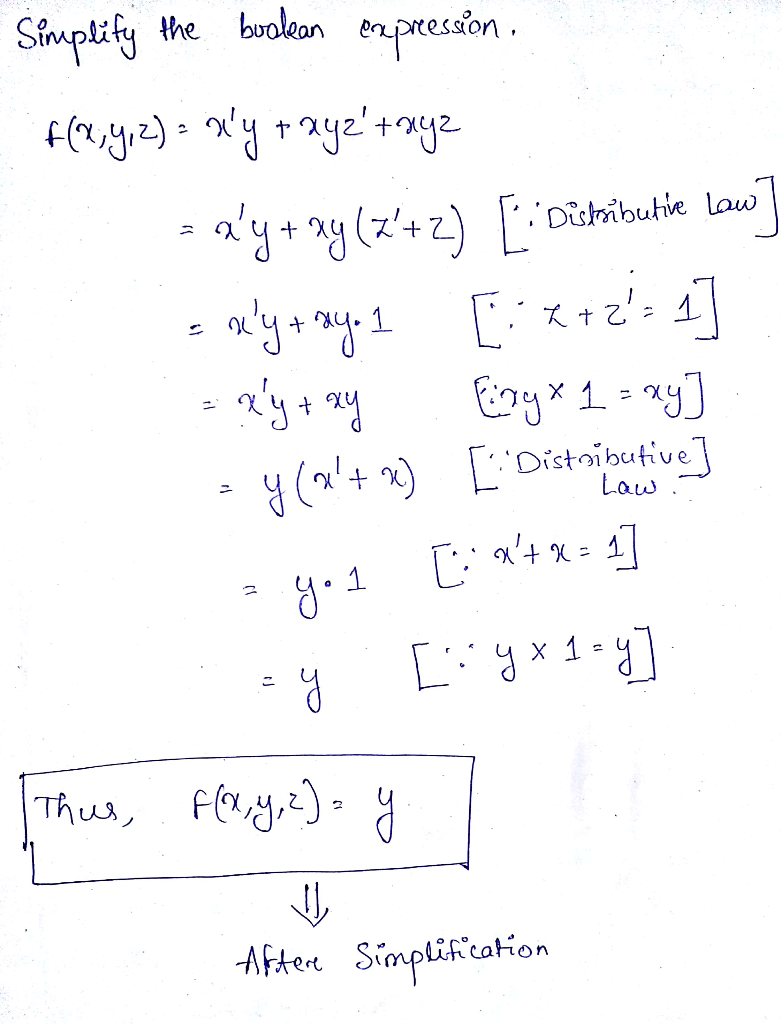 Simplify the boolean expression.
f(x,y,z) = x'y + xyz' + xyz
= x'y + xy(z'+z) [∵ Distributive Law]
= x'y + xy.1 [∵ z+z' = 1]
= x'y + xy [∵ xy x 1 = xy]
= y(x'+x) [∵ Distributive Law.]
= y.1 [∵ x'+x = 1]
= y [∵ y x 1 = y]
Thus, f(x,y,z) = y
⇓
After Simplification